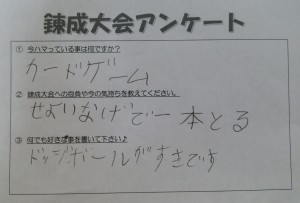 錬成大会アンケート
① 今ハマっている事は何ですか？
カードゲーム
② 錬成大会への抱負や今の気持ちを教えてください。
せよいなげで一本とる
③ 何でも好きな事を書いて下さい♪
ドッジボールがすきです